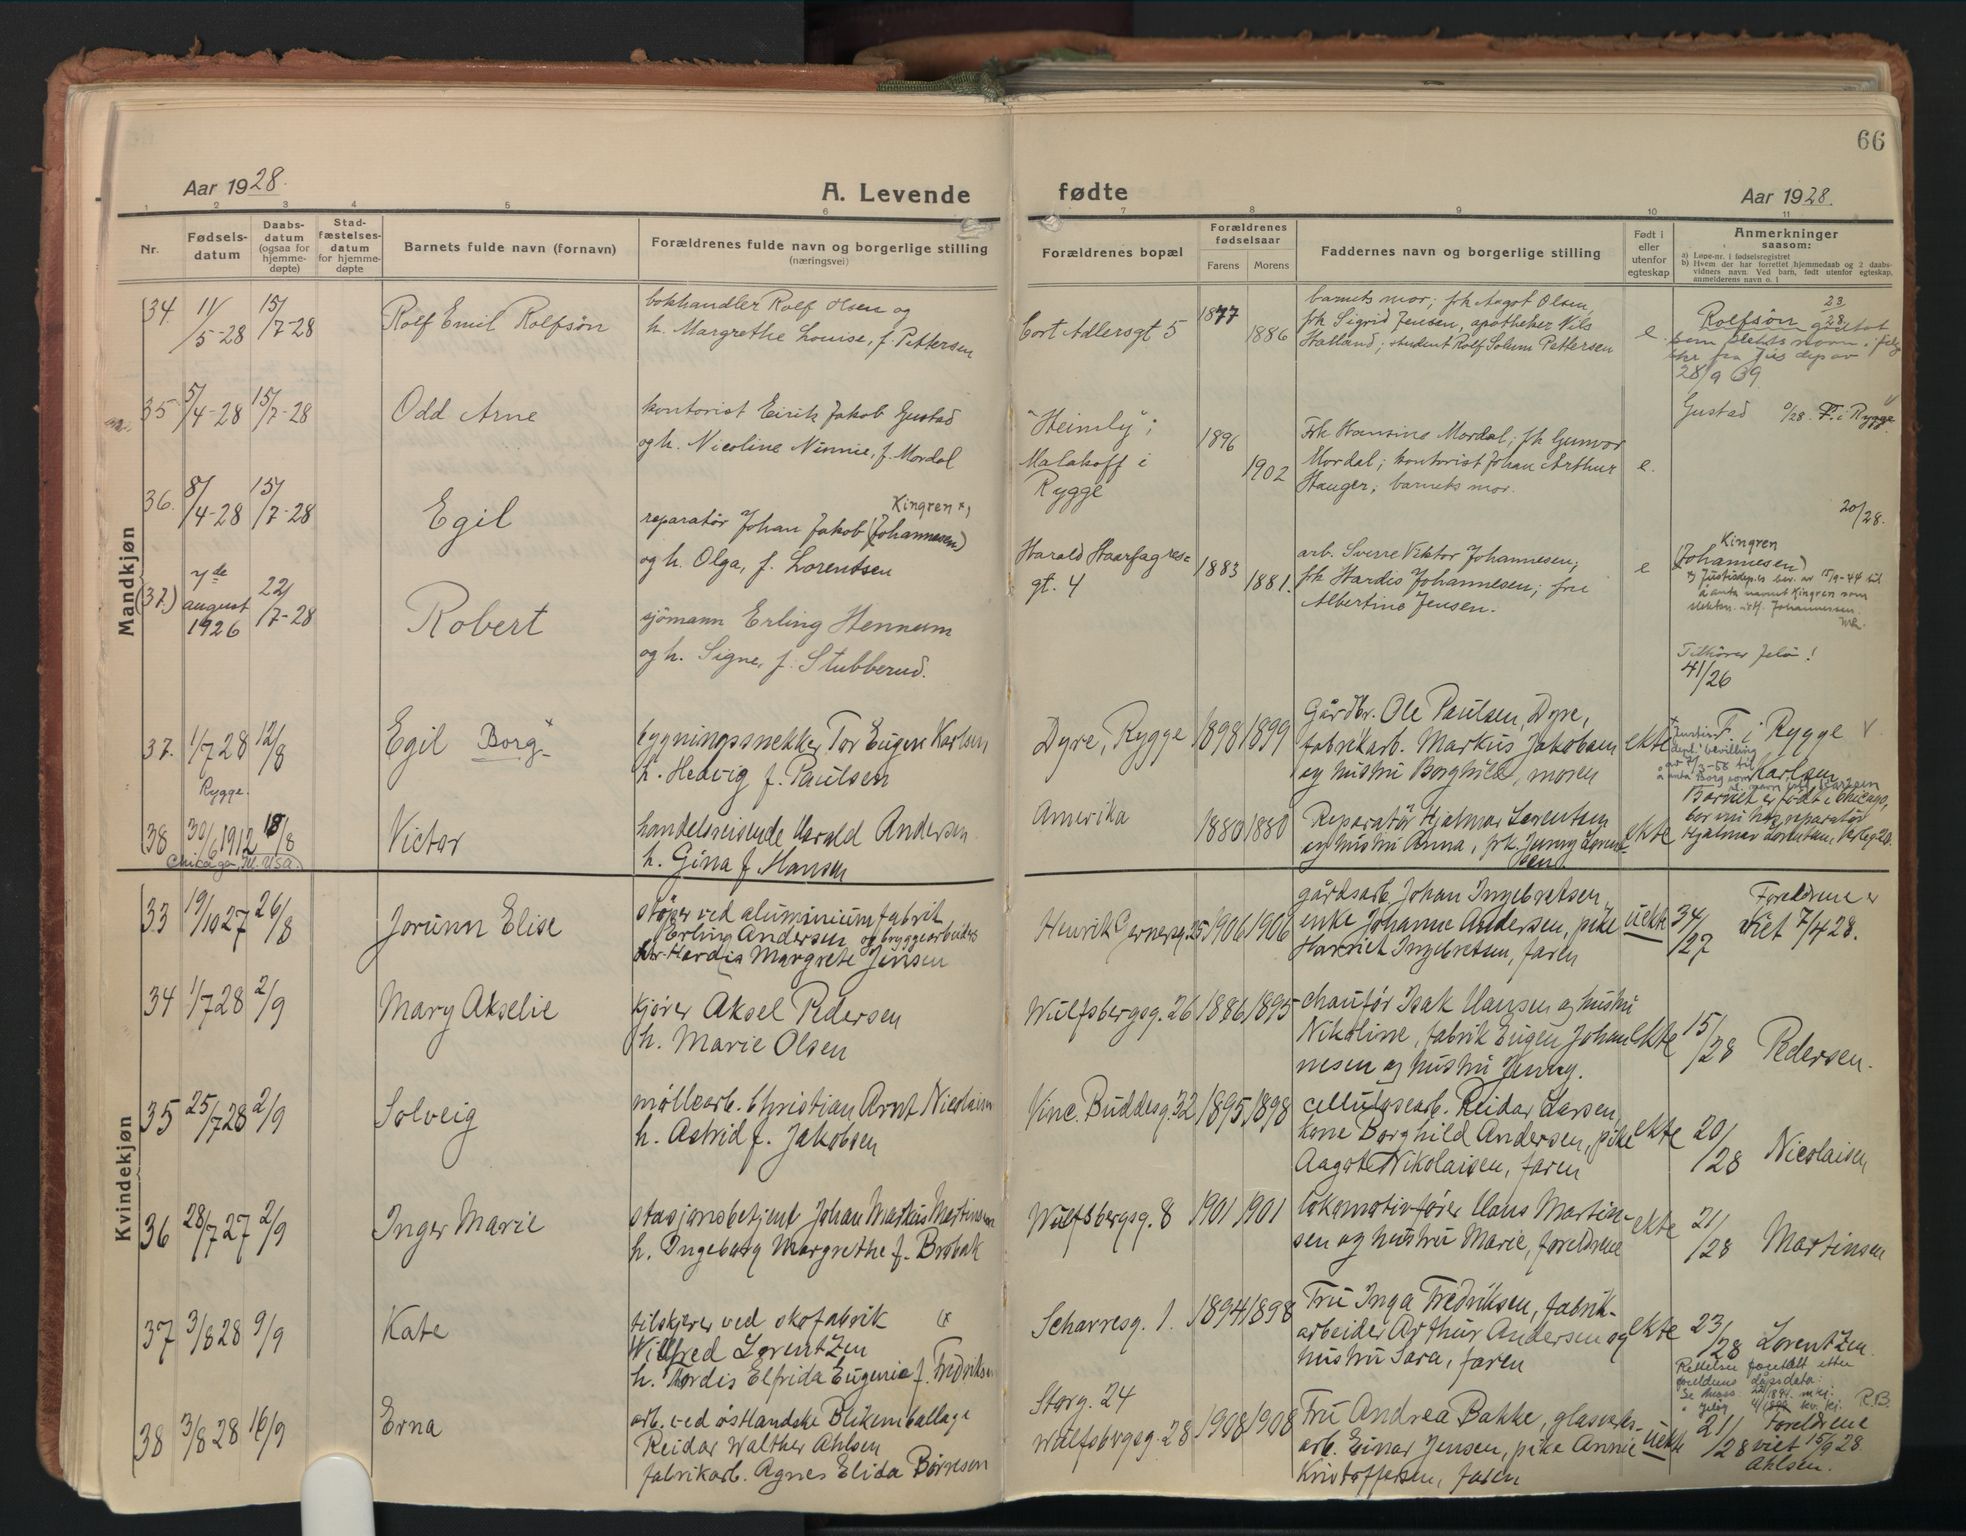 66
Aar 1928.
A. Levende
fødte
Aar 1928.
1 2 3 4 5 6 7 8 9 10 11
Nr.
Fødsels-
datum
Daabs-
datum
(ogsaa for
hjemme-
døpte)
Stad-
fæstelses-
datum
for hjemme-
døpte
Barnets fulde navn (fornavn)
Forældrenes fulde navn og borgerlige stilling
(næringsvei)
Forældrenes bopæl
Forældrenes
fødselsaar
Farens Morens
Faddernes navn og borgerlige stilling
Født i
eller
utenfor
egteskap
Anmerkninger
saasom:
a) Løpe-nr. i fødselsregistret
b) Hvem der har forrettet hjemmedaab og 2 daabs-
vidners navn. Ved barn, født utenfor egteskap,
anmelderens navn o. l.
Mandkjøn
34. 11/5-28 15/7-28
Rolf Emil Rolfsøn
bokhandler Rolf Olsen og
h. Margrethe Louise, f. Pettersen
Cort Adlersgt 5
1877 1886
barnets mor; frk Aagot Olsen,
frk Sigrid Jensen, apotheker Nils
Hatland; student Rolf Solum Pettersen
e.
23/28.
Rolfsøn godtat
som slektsnavn i følge
skr fra Jus dep av
28/9 39.
35. 5/4-28 15/7-28
Odd Arne
kontorist Eirik Jakob Gustad
og h. Nicoline Ninnie, f. Mordal
"Heimly";
Malakoff i
Rygge
1896 1902
Frk Hansine Mordal; frk Gunvor
Mordal; kontorist Johan Arthur
Hauger; barnets mor.
e.
Gustad 9/28. F. i Rygge
36. 8/4-28 15/7-28
Egil
Kingren x)
reparatør Johan Jakob (Johannesen)
og h. Olga, f. Lorentsen
Harald Haarfagres-
gt. 4
1883 1881.
arb. Sverre Viktor Johannesen;
frk Hardis Johannesen; fru
Albertine Jensen.
e
20/28.
Kingren
(Johannesen)
x) Justisdep.es bev. av 15/9-44 til
å anta navnet Kingren som
slektsn. istf. Johannessen.
(37.) 7de
august
1926
22/7-28
Robert
sjømann Erling Hennum
og h. Signe, f. Stubberud.
Tilhører Jeløi!
41/26
37. 1/7 28 12/8
Rygge.
Egil Borg x
bygningssnekker Tor Eugen Karlsen
h. Hedvig f. Paulsen
Dyre, Rygge
1898 1899
Gårdbr. Ole Paulsen, Dyre,
fabrikarb. Markus Jakobsen
og hustru Borghild, moren
ekte
F. i Rygge
Karlsen
38 30/6 1912 18/8
Chicago, Ill. USA.
Victor
handelsreisende Harald Andersen
h. Gina f. Hansen
Amerika
1880 1880
Reparatør Hjalmar Lorentsen
og hustru Anna, frk. Jenny Lorent-
sen
ekte
Barnet er født i Chicago,
bor nu hos reparatør
Hjalmar Lorentsen, Verleg. 20.
Kvindekjøn
33 19/10 27 26/8
Jorunn Elise
støper ved aluminiumfabrik
Erling Andersen og bryggearbeiders
Hardis Margrete Jensen
Henrik Gernersg. 25
1906 1906
gårdsarb. Johan Ingebretsen,
enke Johanne Andersen, pike
Harriet Ingebretsen, faren
uekte
34/27
Foreldrene er
viet 7/4 28.
34 1/7 28 2/9
Mary Akselie
kjører Aksel Pedersen
h. Marie Olsen
Wulfsbergsg. 26
1886 1895
chaufør Isak Hansen og hustru
Nikoline, fabrik Eugen Johan
nesen og hustru Jenny.
ekte
15/28 Pedersen.
35 25/7 28 2/9
Solveig
møllearb. Christian Arnt Nicolaisen
h. Astrid f. Jakobsen
Vinc. Buddesg. 32
1895 1898
cellulosearb. Reidar Larsen,
kone Borghild Andersen, pike
Aagot Nikolaisen, faren
ekte
20/28 Nicolaisen
36 28/7 27 2/9
Inger Marie
stasjonsbetjent Johan Markus Martinsen
h. Ingeborg Margrethe f. Brobak
Wulfsbergsg. 8
1901 1901
lokomotivfører Hans Martin-
sen og hustru Marie, foreldrene
ekte
21/28 Martinsen
37 3/8 28 9/9
Kate
tilskjærer ved skofabrik
Wilfred Lorentzen
h. Hordis Elfrida Eugenie f. Fredriksen
Scharresg. 1.
1894 1898
Fru Inga Fredriksen, fabrik-
arbeider Arthur Andersen og
hustru Sara, faren
ekte
23/28 Lorentzen.
Rettelser foretatt etter
foreldrens dåpsdata:
R.B.
38 3/8 28 16/9
Erna
arb. ved østlandske Blikemballage
Reidar Walther Ahlsen
fabrikarb. Agnes Elida Børresen
Storg. 24
Wulfsbergsg. 28
1908 1908
Fru Andrea Bakke, glasverks-
arb. Einar Jensen, pike Annie
Kristoffersen, faren
uekte
21/28
Foreldrene
viet 15/9 28.
Ahlsen.